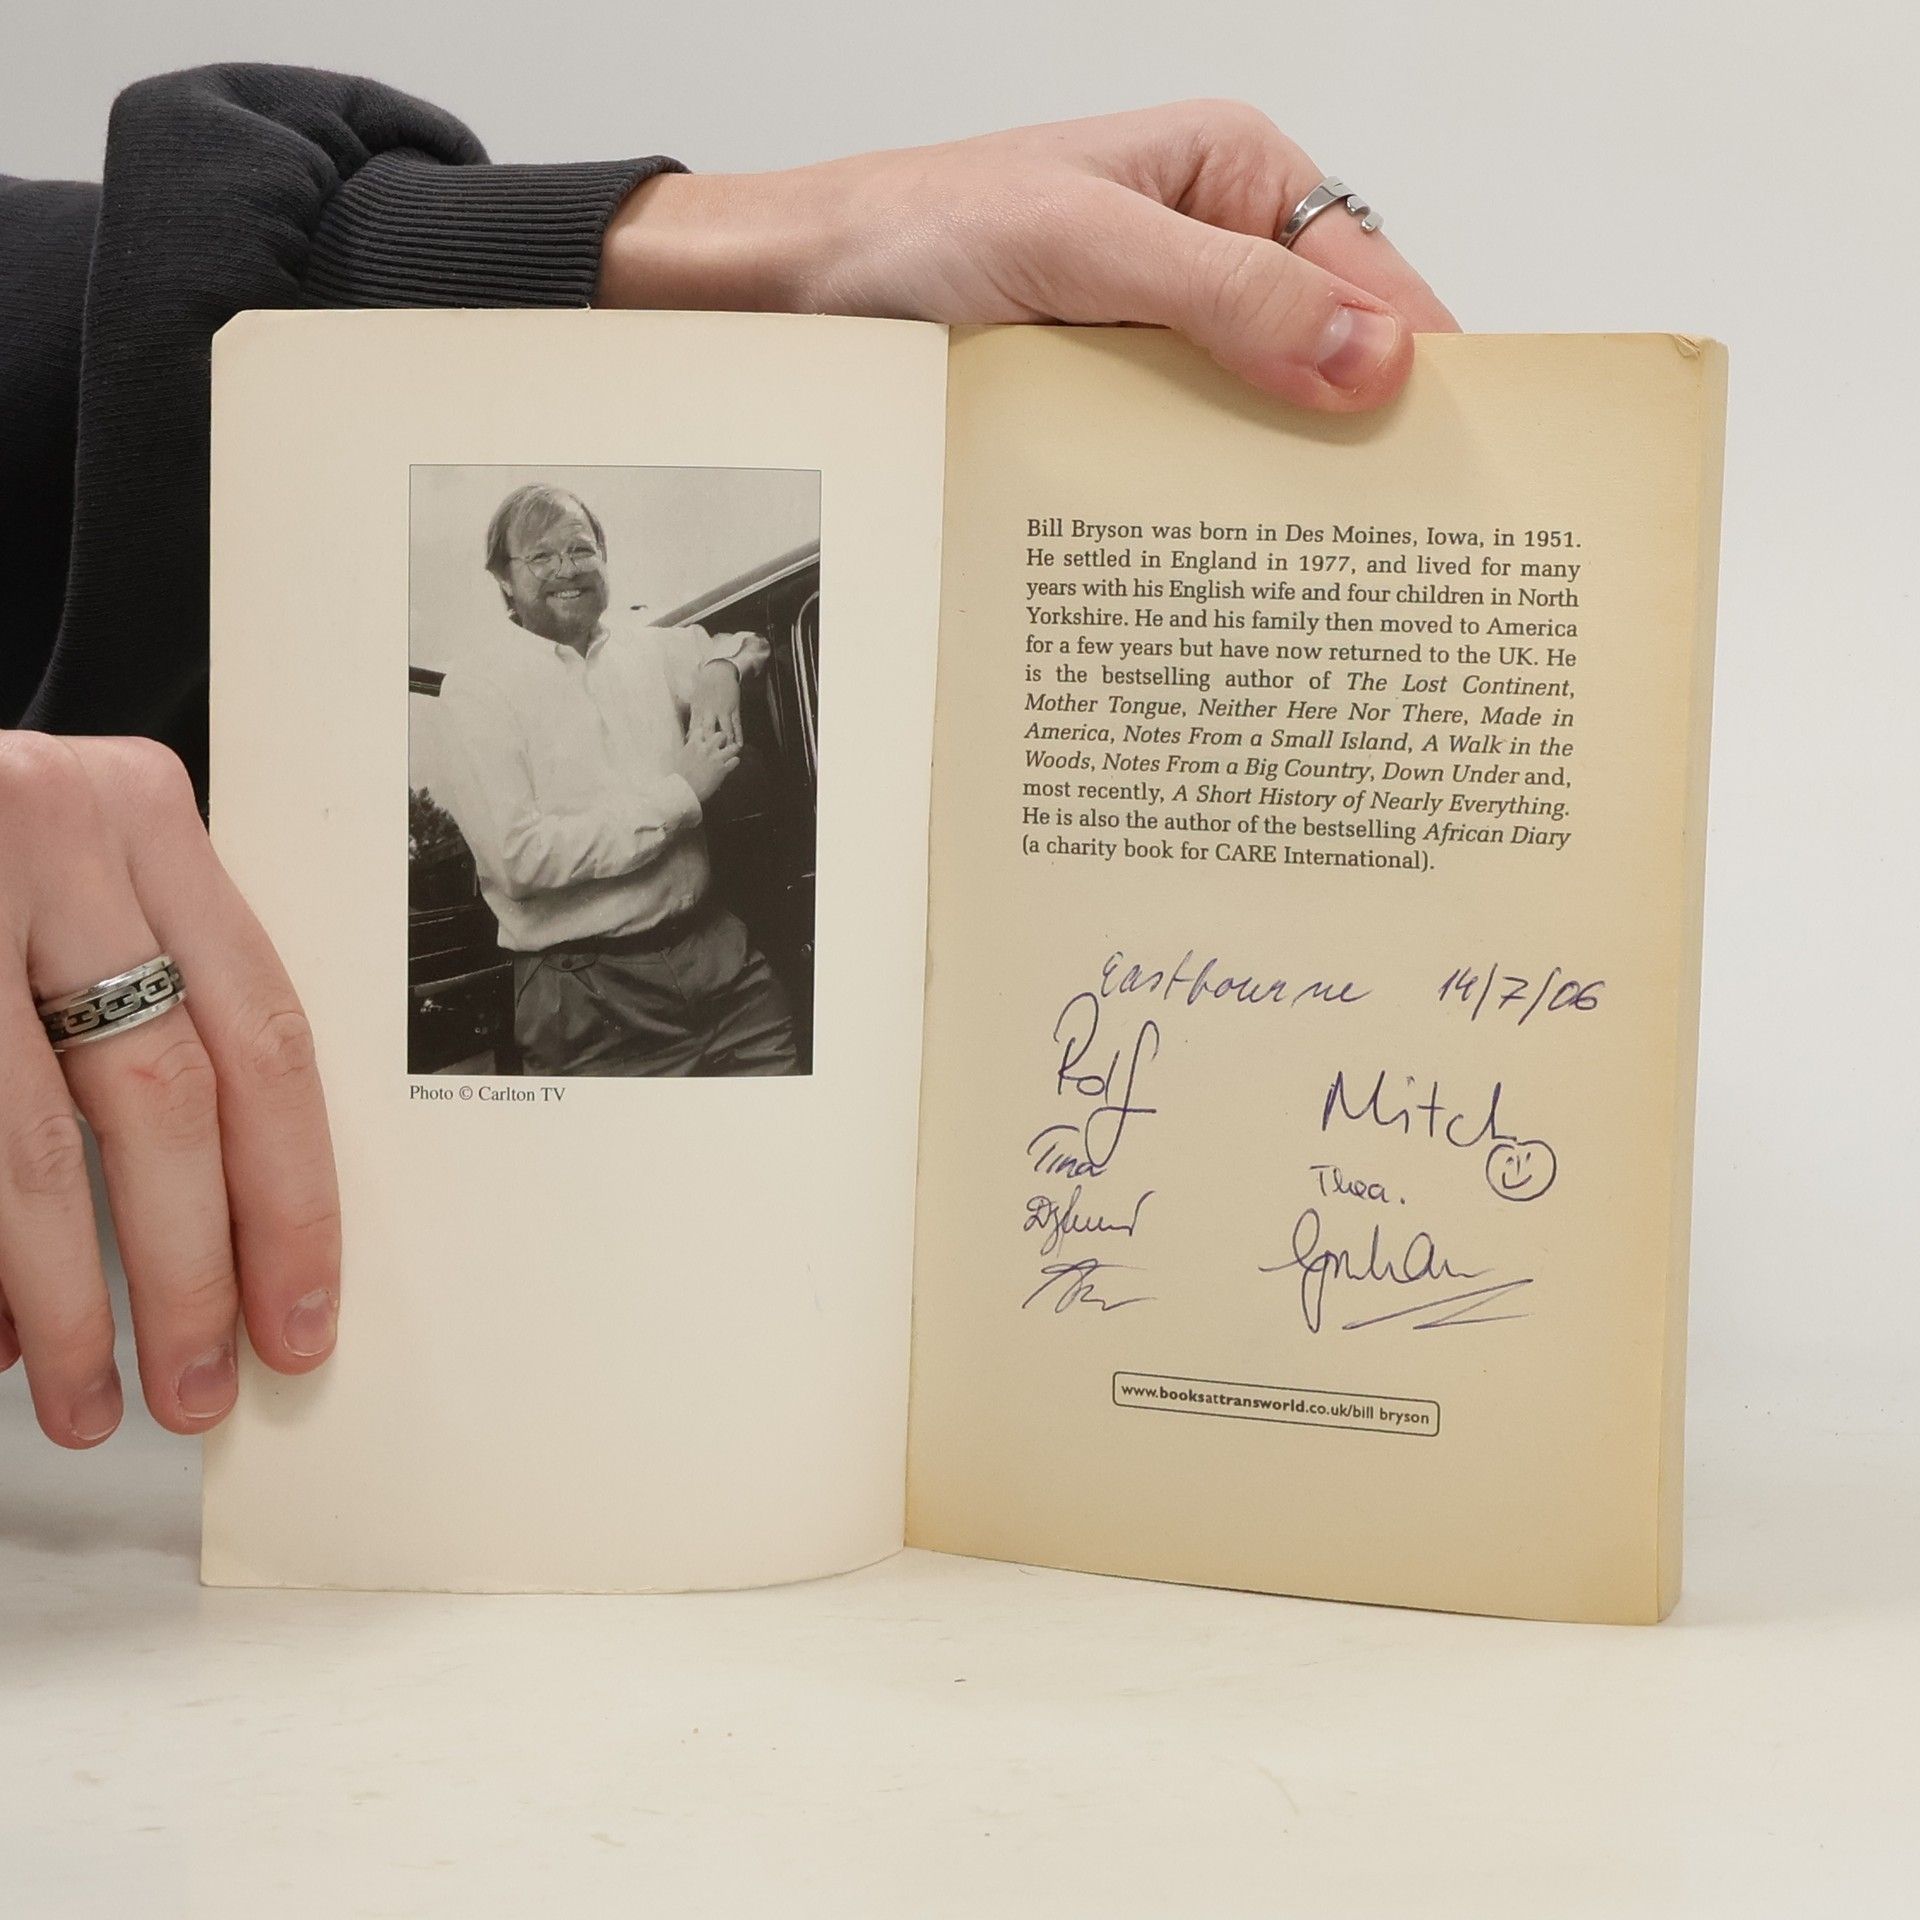 Photo © Carlton TV
Bill Bryson was born in Des Moines, Iowa, in 1951.
He settled in England in 1977, and lived for many
years with his English wife and four children in North
Yorkshire. He and his family then moved to America
for a few years but have now returned to the UK. He
is the bestselling author of The Lost Continent,
Mother Tongue, Neither Here Nor There, Made in
America, Notes From a Small Island, A Walk in the
Woods, Notes From a Big Country, Down Under and,
most recently, A Short History of Nearly Everything.
He is also the author of the bestselling African Diary
(a charity book for CARE International).
Eastbourne 14/7/06
Rolf
Mitch
Tina
Thea.
www.booksattransworld.co.uk/bill bryson